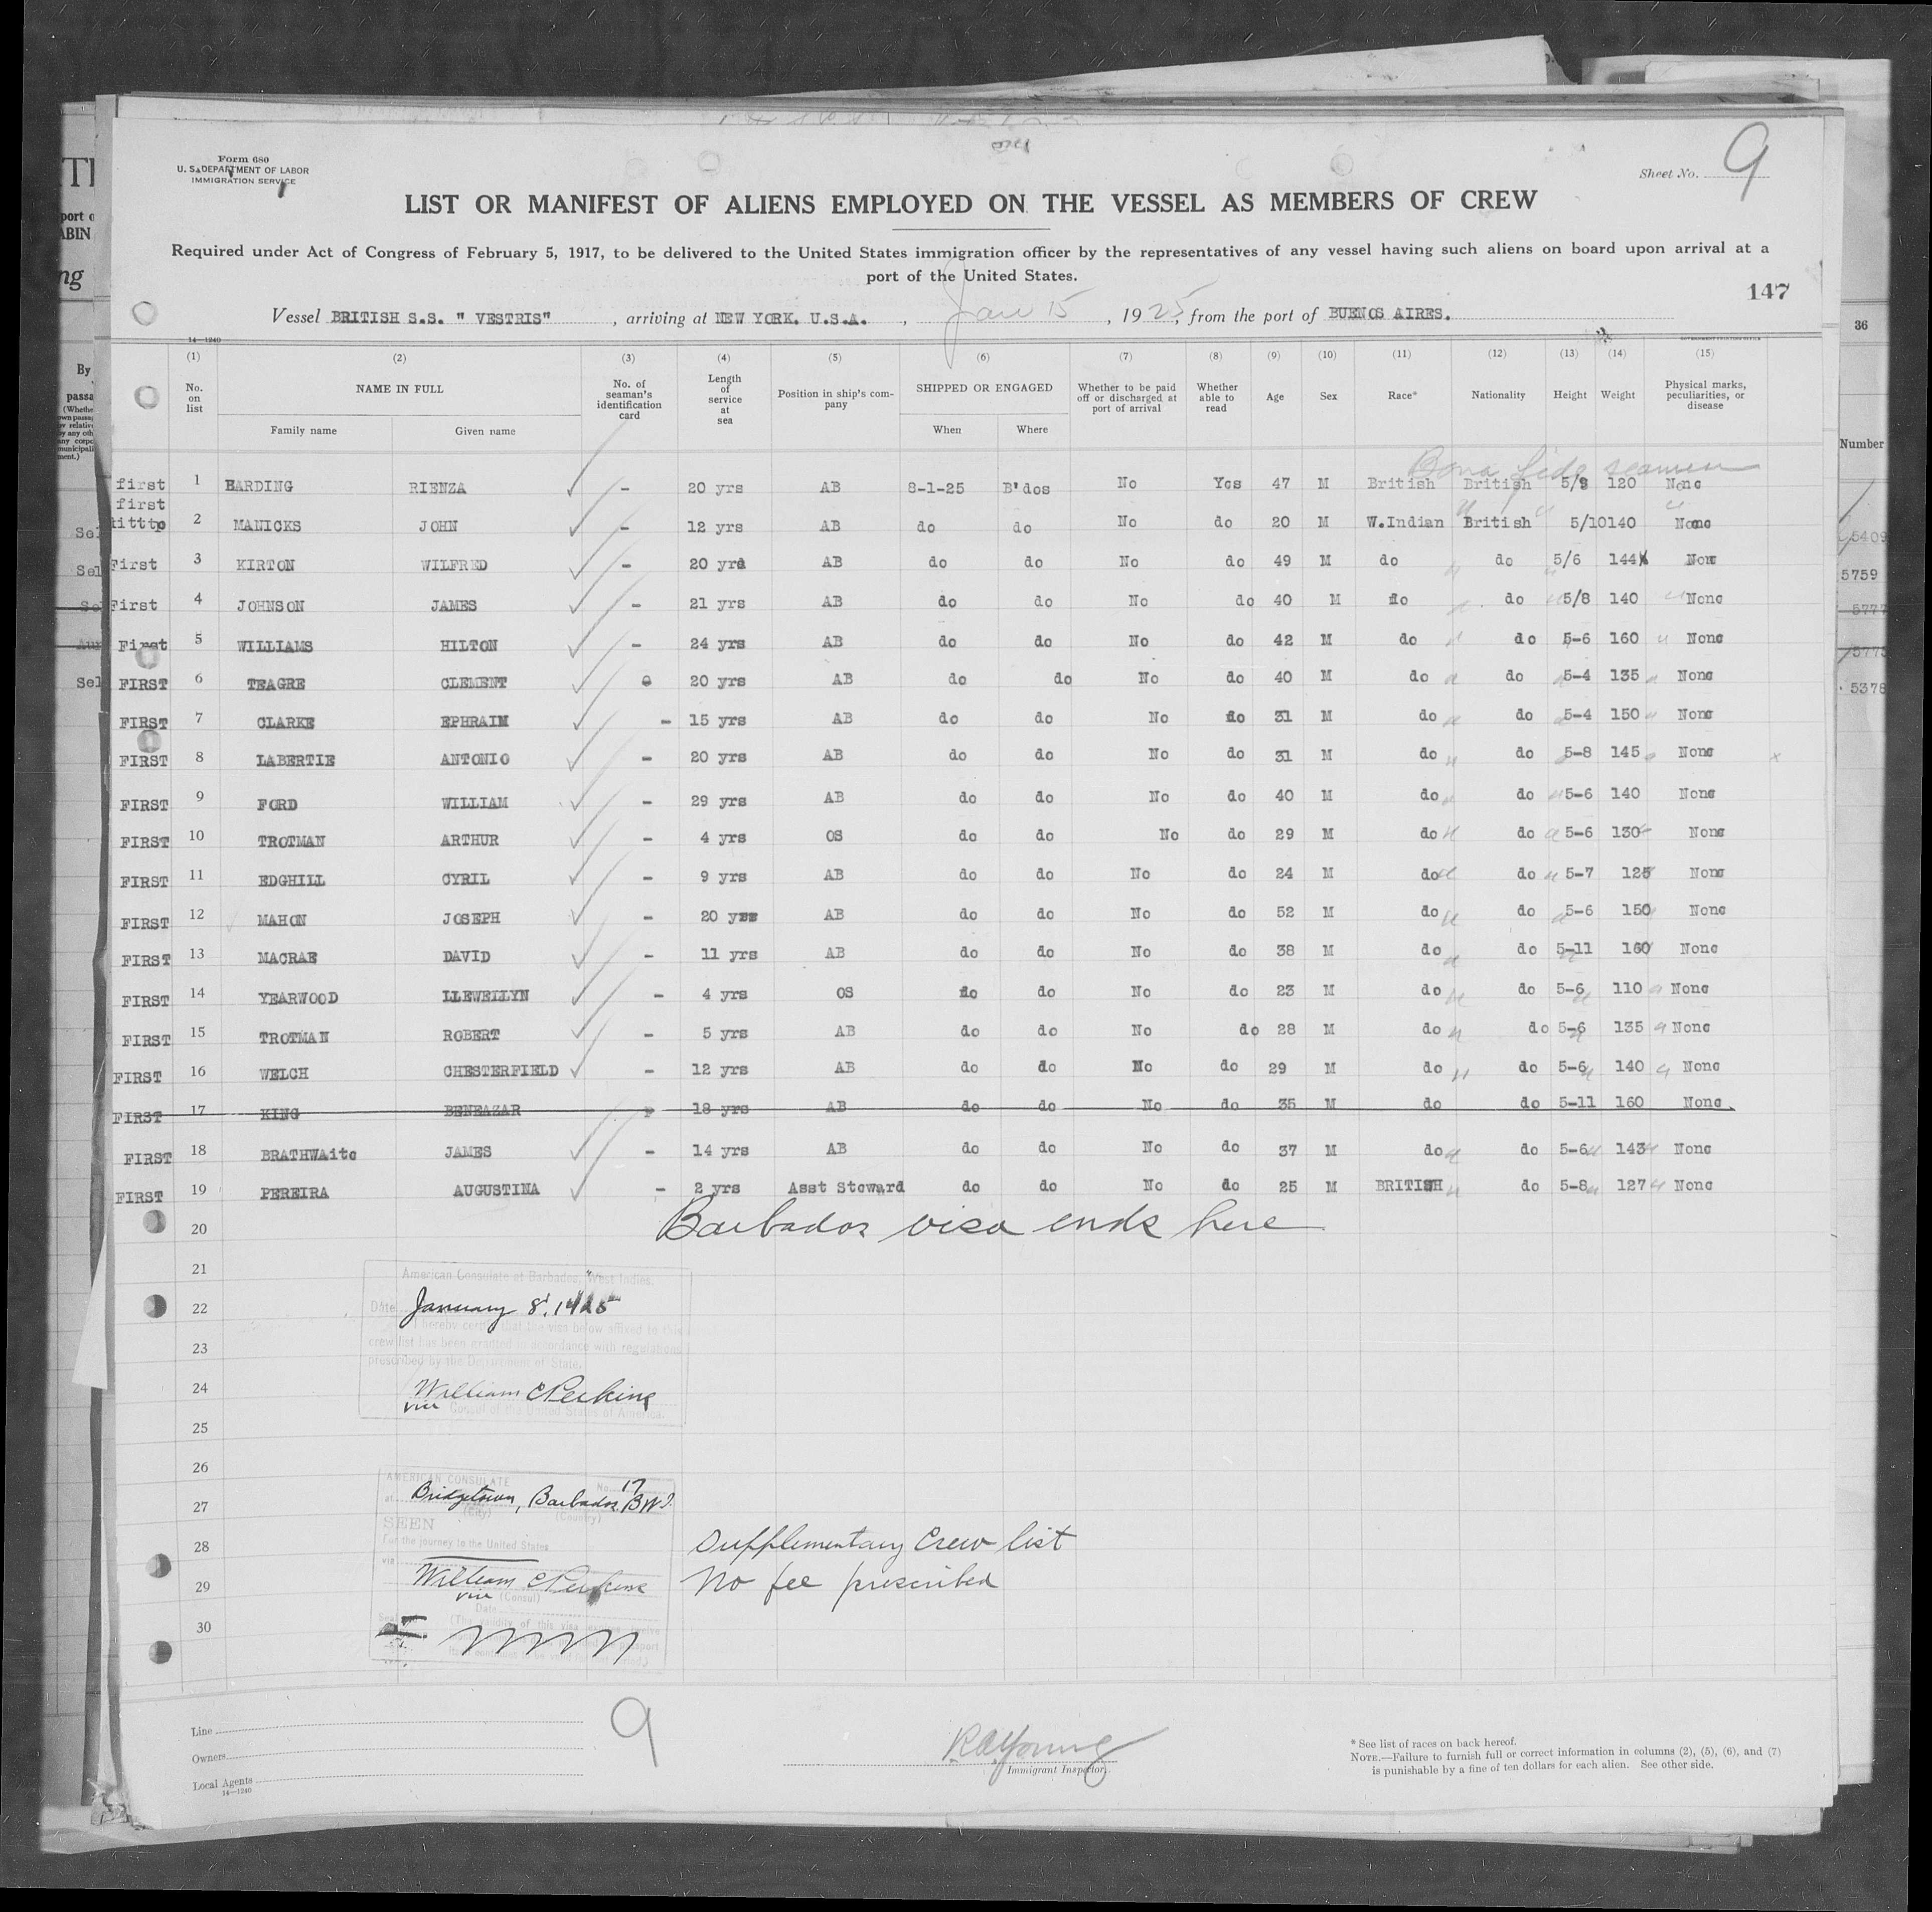 Form 680
U. S. DEPARTMENT OF LABOR
IMMIGRATION SERVICE
Sheet No. 9
LIST OR MANIFEST OF ALIENS EMPLOYED ON THE VESSEL AS MEMBERS OF CREW
Required under Act of Congress of February 5, 1917, to be delivered to the United States immigration officer by the representatives of any vessel having such aliens on board upon arrival at a
port of the United States.
147
Vessel BRITISH S.S. " VESTRIS" , arriving at NEW YORK. U.S.A. , Jan 15 , 1925, from the port of BUENOS AIRES.
14—1240
(1) (2) (3) (4) (5) (6) (7) (8) (9) (10) (11) (12) (13) (14) (15)
No. on list NAME IN FULL Family name Given name No. of seaman's identification card Length of service at sea Position in ship's company SHIPPED OR ENGAGED When Where Whether to be paid off or discharged at port of arrival Whether able to read Age Sex Race* Nationality Height Weight Physical marks, peculiarities, or disease
Bona fide seamen
first 1 HARDING RIENZA - 20 yrs AB 8-1-25 B'dos No Yes 47 M British British 5/8 120 None
first
2 MANICKS JOHN - 12 yrs AB do do No do 20 M W.Indian British 5/10 140 None
First 3 KIRTON WILFRED - 20 yrs AB do do No do 49 M do do 5/6 144 None
First 4 JOHNSON JAMES - 21 yrs AB do do No do 40 M do do 5/8 140 None
First 5 WILLIAMS HILTON - 24 yrs AB do do No do 42 M do do 5-6 160 None
FIRST 6 TEAGRE CLEMENT 20 yrs AB do do No do 40 M do do 5-4 135 None
FIRST 7 CLARKE EPHRAIM - 15 yrs AB do do No do 31 M do do 5-4 150 None
FIRST 8 LABERTIE ANTONIO - 20 yrs AB do do No do 31 M do do 5-8 145 None
FIRST 9 FORD WILLIAM - 29 yrs AB do do No do 40 M do do 5-6 140 None
FIRST 10 TROTMAN ARTHUR - 4 yrs OS do do No do 29 M do do 5-6 130 None
FIRST 11 EDGHILL CYRIL - 9 yrs AB do do No do 24 M do do 5-7 125 None
FIRST 12 MAHON JOSEPH - 20 yrs AB do do No do 52 M do do 5-6 150 None
FIRST 13 MACRAE DAVID - 11 yrs AB do do No do 38 M do do 5-11 160 None
FIRST 14 YEARWOOD LLEWELLYN - 4 yrs OS do do No do 23 M do do 5-6 110 None
FIRST 15 TROTMAN ROBERT - 5 yrs AB do do No do 28 M do do 5-6 135 None
FIRST 16 WELCH CHESTERFIELD - 12 yrs AB do do No do 29 M do do 5-6 140 None
FIRST 17 KING BENEAZAR 18 yrs AB do do No do 35 M do do 5-11 160 None
FIRST 18 BRATHWAite JAMES - 14 yrs AB do do No do 37 M do do 5-6 143 None
FIRST 19 PEREIRA AUGUSTINA - 2 yrs Asst Steward do do No do 25 M BRITISH do 5-8 127 None
20 Barbados visa ends here
21 American Consulate at Barbados, West Indies.
22 Date January 8, 1925
I hereby certify that the visa below affixed to this
23 crew list has been granted in accordance with regulations
prescribed by the Department of State.
24 William C Perkins
vice Consul of the United States of America.
25
26 AMERICAN CONSULATE No. 17
27 at Bridgetown, Barbados, BWI
(City) (Country)
SEEN
28 For the journey to the United States
Supplementary Crew list
via
29 William C Perkins
No fee prescribed
vice (Consul)
Date
30
Line
Owners
Local Agents
14—1240
9
R A Young
Immigrant Inspector.
* See list of races on back hereof.
NOTE.—Failure to furnish full or correct information in columns (2), (5), (6), and (7)
is punishable by a fine of ten dollars for each alien. See other side.
By
36
Number
5409
5759
5777
5775
5378